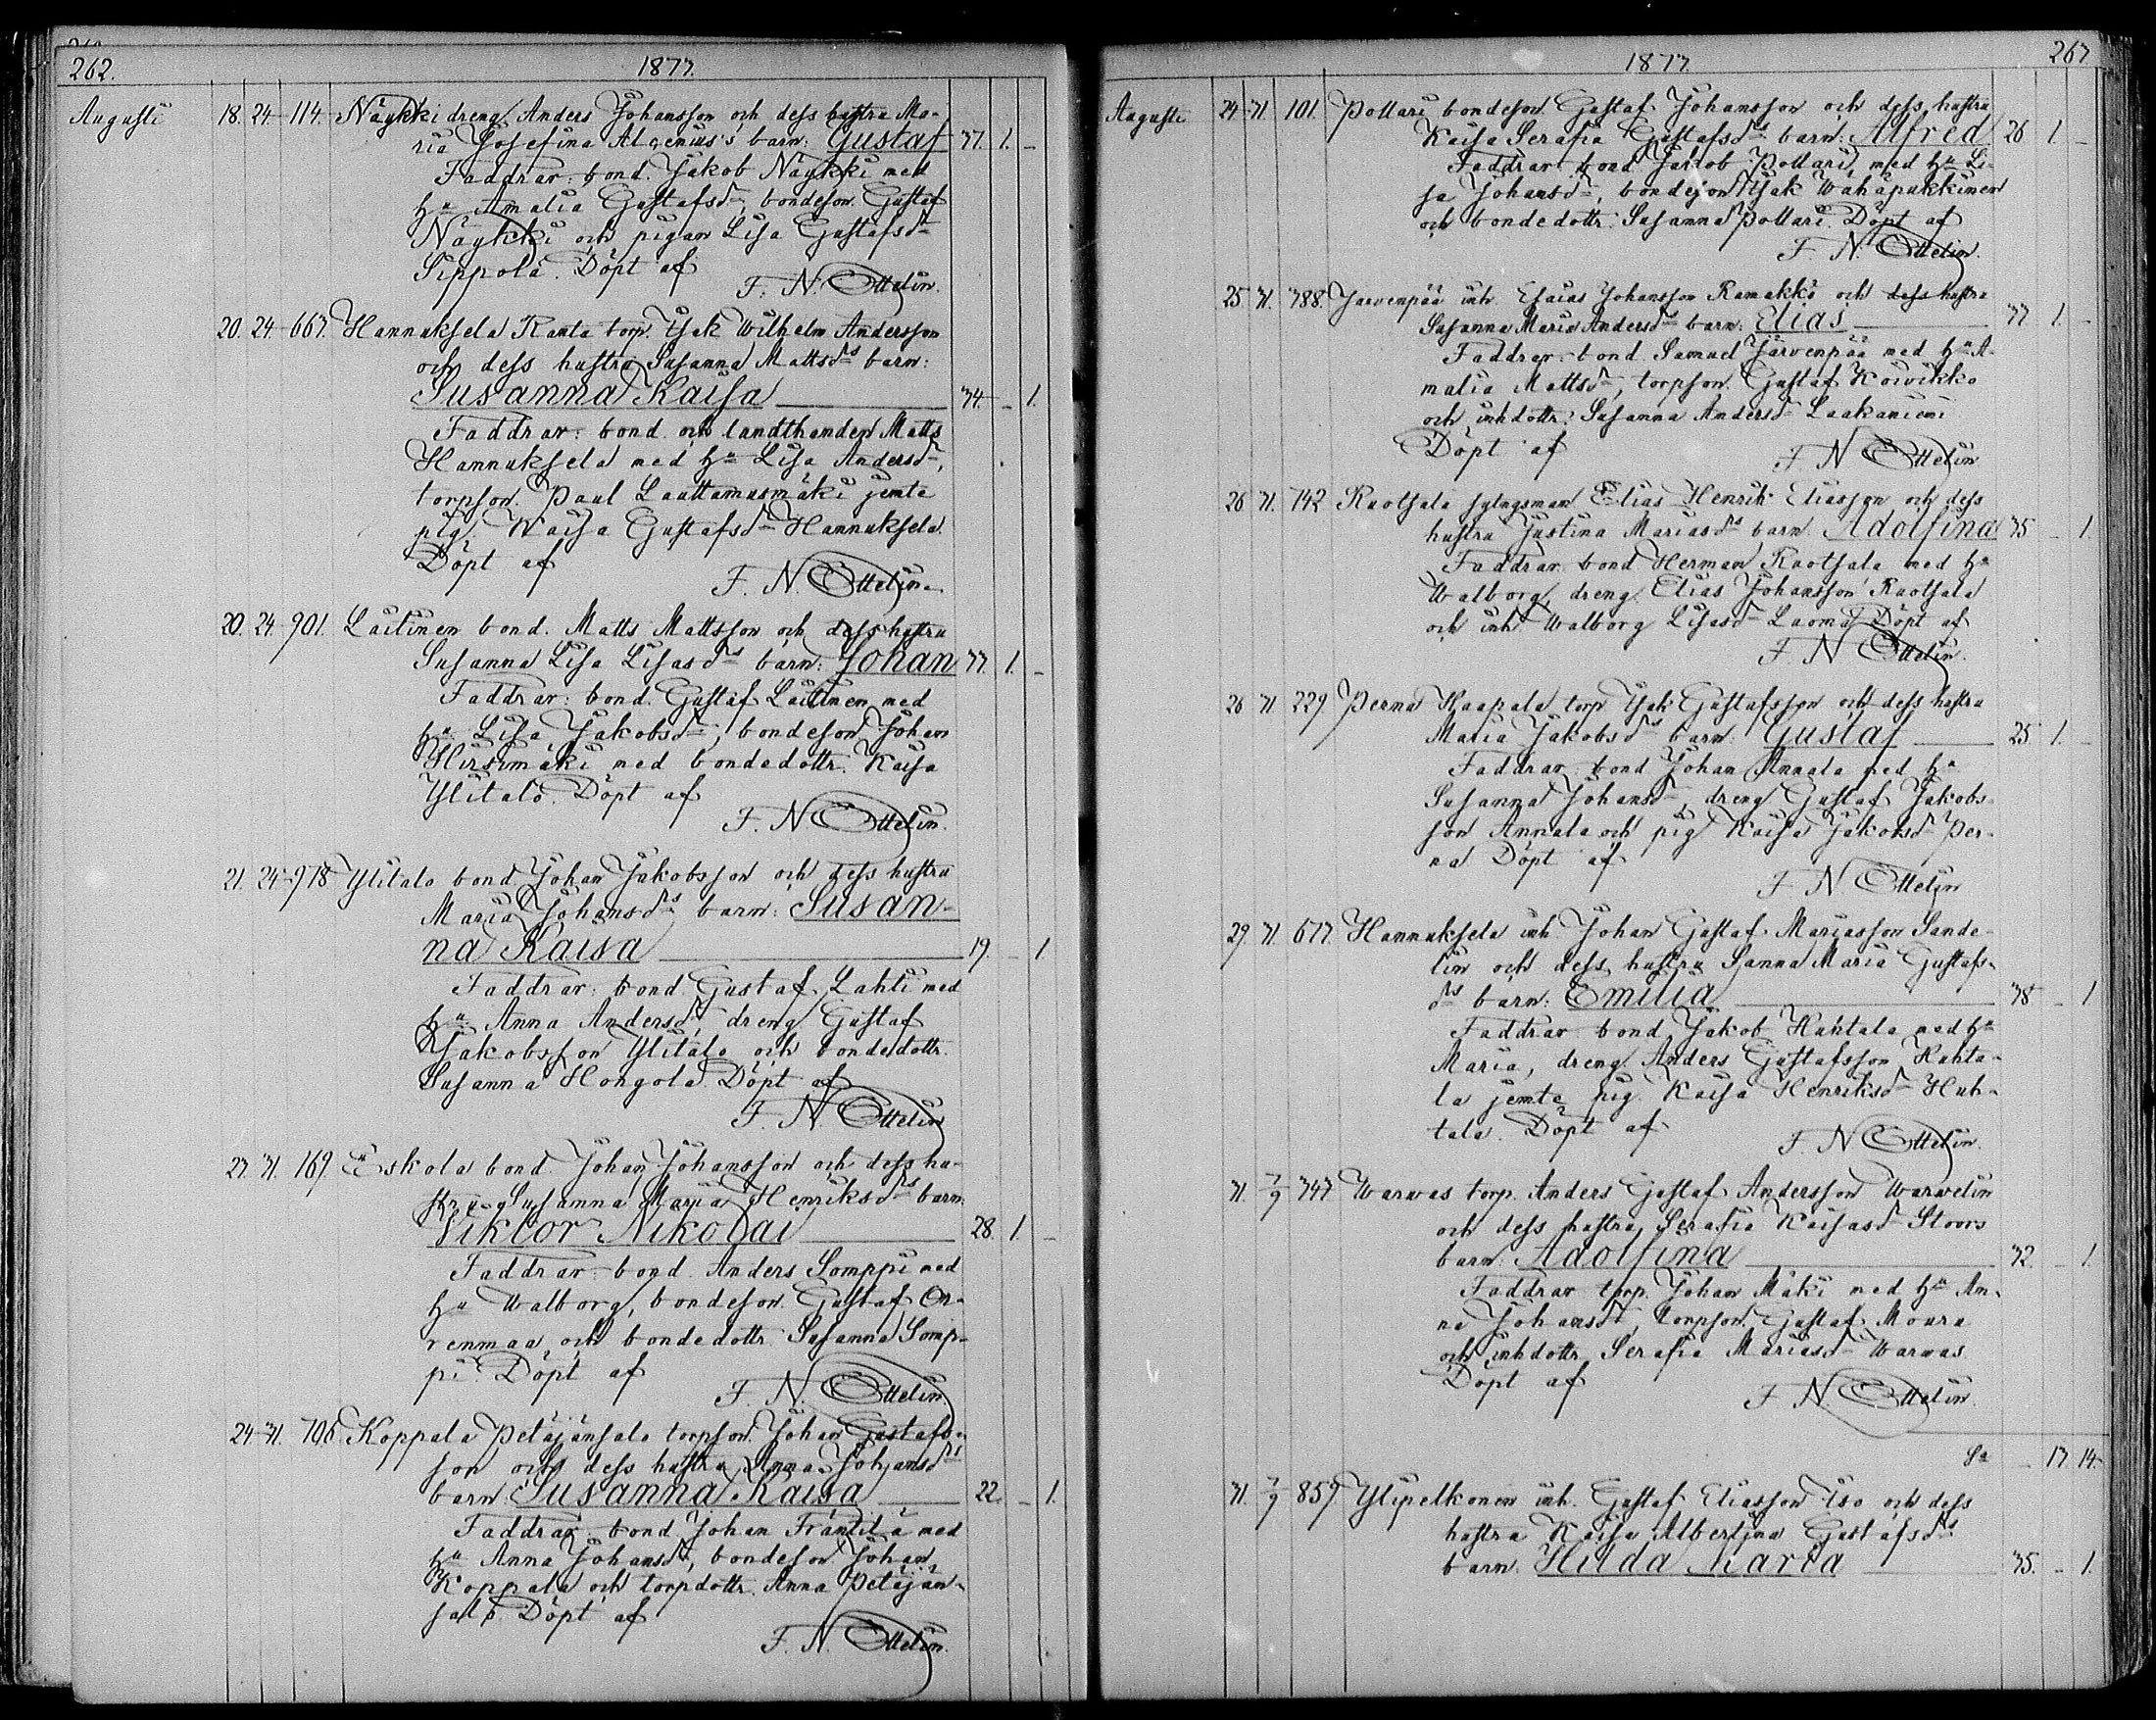 262. 1873.
Augusti 18. 24 114. Näykki dreng Anders Johansson och dess hustru Ma-
ria Josefina Algenius's barn: Gustaf 37. 1. -
Faddrar: bond. Jakob Näykki med
hu Amalia Gustafsdr, bondeson Gustaf
Näykki och pigan Lisa Gustafsdr
Sippola. Döpt af
F. N. Ottelin.
20. 24 667. Hannuksela Ranta torp. Isak Wilhelm Andersson
och dess hustru Susanna Mattsdrs barn:
Susanna Kaisa 34. - 1.
Faddrar: bond. och landthanden Matts
Hannuksela med hu Lisa Andersdr,
torpson. Paul Lauttamusmäki jemte
pig. Kaisa Gustafsdr Hannuksela.
Döpt af
F. N. Ottelin.
20. 24 901. Laitinen bond. Matts Mattsson och dess hustru
Susanna Lisa Lisasdrs barn: Johan 33. 1. -
Faddrar: bond. Gustaf Laitinen med
hu Lisa Jakobsdr, bondeson Johan
Hirsimäki med bondedottr. Kaisa
Ylitalo. Döpt af
F. N. Ottelin.
21. 24 918 Ylitalo bond. Johan Jakobsson och dess hustru
Maria Johansdrs barn: Susan-
na Kaisa 19. - 1
Faddrar: bond. Gustaf Lahti med
hu Anna Andersdr, dreng Gustaf
Jakobsson Ylitalo och bondedottr.
Susanna Hongola. Döpt af
F. N. Ottelin
23. 31. 169. Eskola bond. Johan Johansson och dess hu-
stru Susanna Maria Henriksdrs barn:
Viktor Nikolai 28. 1. -
Faddrar: bond. Anders Somppi med
hu Walborg, bondeson. Gustaf On-
renmaa och bondedottr. Susanna Somp-
pi. Döpt af
F. N. Ottelin.
24 31. 706. Koppala Petäjänsalo torpson. Johan Gustafs-
son och dess hustru Anna Johansdrs
barn: Susanna Kaisa 22. - 1.
Faddrar: bond Johan Fräntilä med
hu Anna Johansdr, bondeson Johan
Koppala och torpdottr. Anna Petäjän-
salo. Döpt af
F. N. Ottelin.
1873. 263
Augusti 24 31 101. Pottari bondeson Gustaf Johansson och dess hustru
Kaisa Serafia Gustafsdrs barn: Alfred 26 1. -
Faddrar: bond Jakob Pottari, med hu Li-
sa Johansdr, bondeson Isak Wähäpukkinen
och bondedottr. Susanna Pottari. Döpt af
F. N. Ottelin.
25 31. 788. Jarvenpää inh. Esaias Johansson Ramakko och dess hustru
Susanna Maria Andersdrs barn: Elias 33 1. -
Faddrar: bond. Samuel Järvenpää med hu A-
malia Mattsdr, torpson. Gustaf Koivikko
och inhdottr. Susanna Andersdr Laakaniemi
Döpt af F. N. Ottelin
26 31. 742 Ruotsala sytngsman Elias Henrik Eliasson och dess
hustru Justina Mariasdrs barn. Adolfina 35 - 1.
Faddrar. bond Herman Ruotsala med hu
Walborg, dreng. Elias Johansson Ruotsala
och inh. Walborg Lisasdr Laoma. Döpt af
F. N. Ottelin.
26 31 229 Perna Haapala torp Isak Gustafsson och dess hustru
Maria Jakobsdrs barn: Gustaf 25 1. -
Faddrar bond Johan Annala med hu
Susanna Johansdr, dreng Gustaf Jakobs-
son Annala och pig Kaisa Jakobsdr Per-
na Döpt af
F. N. Ottelin
29. 31. 677. Hannuksela inh. Johan Gustaf Mariasson Sande-
lin och dess hustru Sanna Maria Gustafs-
drs barn: Emilia 38 - 1
Faddrar bond Jakob Huhtala med hu
Maria, dreng. Anders Gustafsson Huhta-
la jemte pig. Kaisa Henriksdr Huh-
tala. Döpt af
F. N. Ottelin.
31. 7/9 747 Warwas torp. Anders Gustaf Andersson Warwelin
och dess hustru Serafia Kaisasdr Stoors
barn: Adolfina 32. - 1.
Faddrar torp. Johan Mäki med hu An-
na Johansdr, torpson. Gustaf Moura
och inhdottr Serafia Mariasdr Warwas
Döpt af F. N. Ottelin.
Sa - 13 14.
31. 7/9 859 Ylipelkonen inh. Gustaf Eliasson Iso och dess
hustru Kaisa Albertina Gustafsdrs
barn: Hilda Maria 35. - 1.